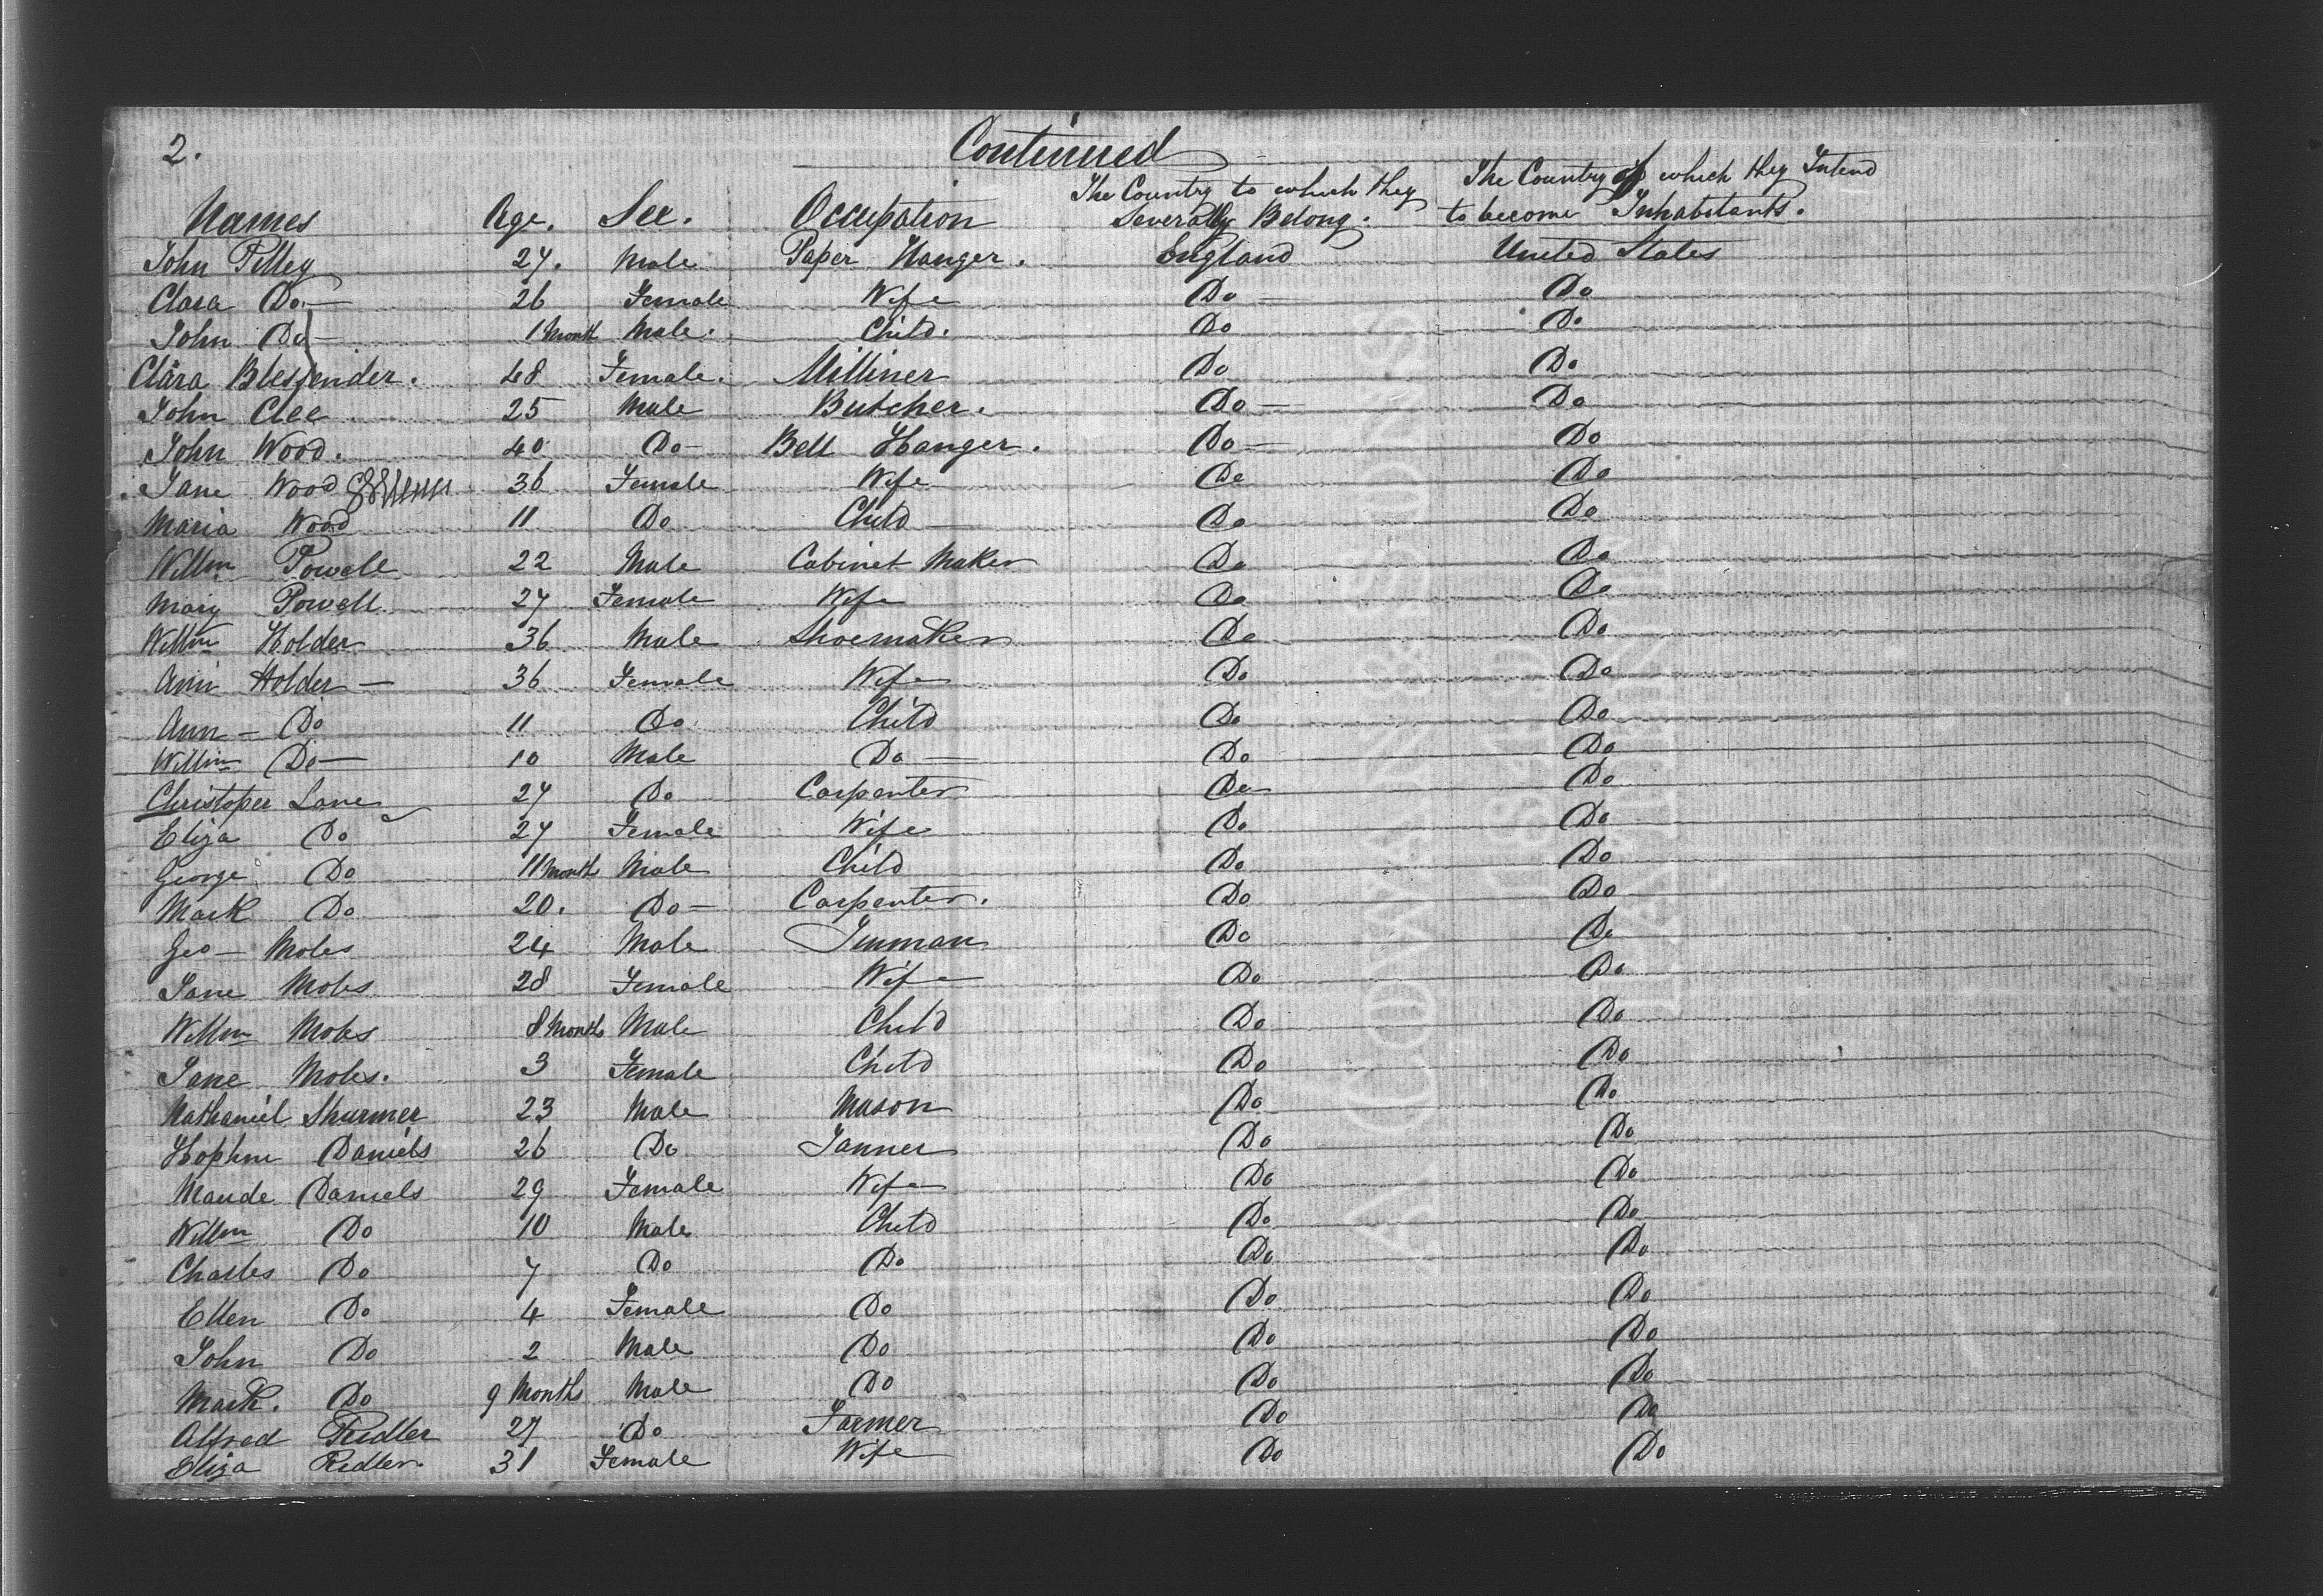 2. Continued
Names Age. Sex. Occupation The Country to which they Severally Belong. The Country of which they Intend to become Inhabitants.
John Tilley 27. Male Paper Hanger. England United States
Clara Do 26 Female Wife Do Do
John Do 1 Month Male. Child. Do Do
Clara Blessender. 48 Female. Milliner Do Do
John Clee 25 Male Butcher. Do Do
John Wood. 40 Do Bell Hanger. Do Do
Jane Wood 36 Female Wife Do Do
Maria Wood 11 Do Child Do Do
Willm Powell 22 Male Cabinet Maker Do Do
Mary Powell 27 Female Wife Do Do
Willm Holder 36 Male Shoemaker Do Do
Ann Holder — 36 Female Wife Do Do
Ann — Do 11 Do Child Do Do
Willm Do — 10 Male Do Do Do
Christoper Lane 27 Do Carpenter Do Do
Eliza Do 27 Female Wife Do Do
George Do 11 Month Male Child Do Do
Mark Do 20. Do Carpenter. Do Do
Geo — Moles 24 Male Do Do
Jane Moles 28 Female Wife Do Do
Willm Moles 8 Months Male Child Do Do
Jane Moles. 3 Female Child Do Do
Nathaniel Shurmer 23 Male Mason Do Do
Daniels 26 Do Tanner Do Do
Maude Daniels 29 Female Wife Do Do
Willm Do 10 Male Child Do Do
Charles Do 7 Do Do Do Do
Ellen Do 4 Female Do Do Do
John Do 2 Male Do Do Do
Mark. Do 9 Months Male Do Do Do
Alfred Ridler 27 Do Farmer Do Do
Eliza Ridler 31 Female Wife Do Do
A COWAN & SONS